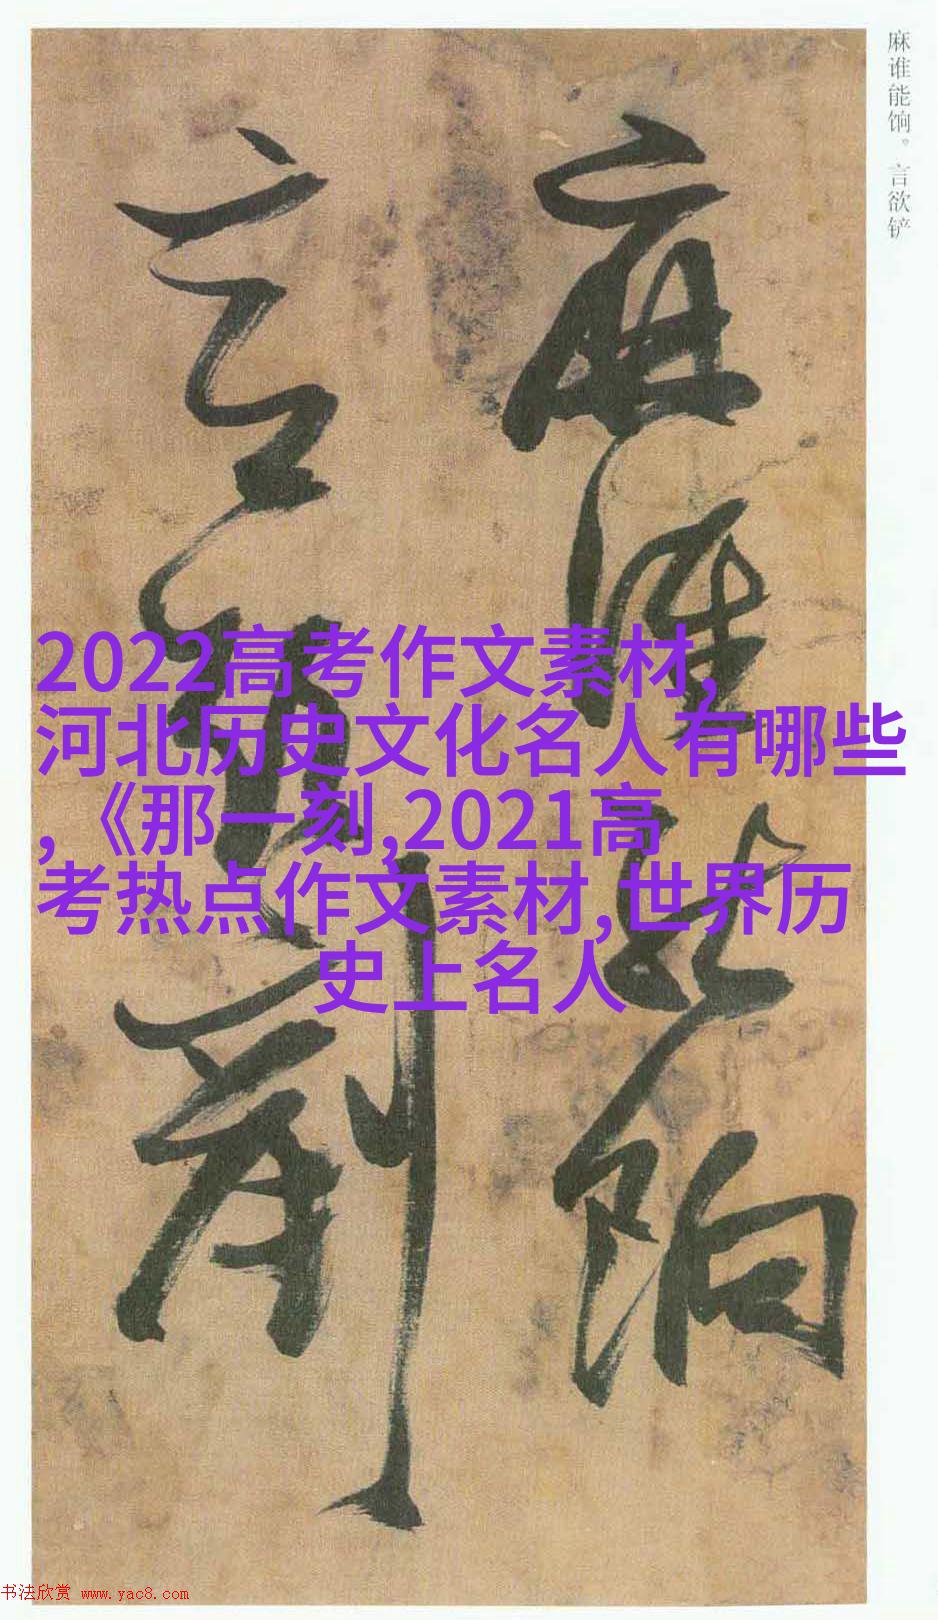 麻谁能饷。言欲铲
麻谁能饷
言欲铲
2022高考作文素材,
河北历史文化名人有哪些
,《那一刻,2021高
考热点作文素材,世界历
史上名人
书法欣赏 www.yac8.com